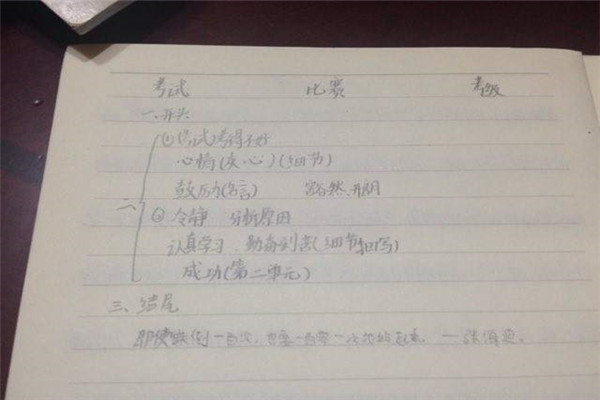 考试 比赛 考级
一、开头
二、
①(考试)考得不好
心情(灰心)(细节)
鼓励(名言) 豁然开朗
②冷静 分析原因
认真学习 勤奋刻苦(细节描写)
成功(第二单元)
三、结尾
即使跌倒一百次,也要一百零一次地站起来。——张海迪。